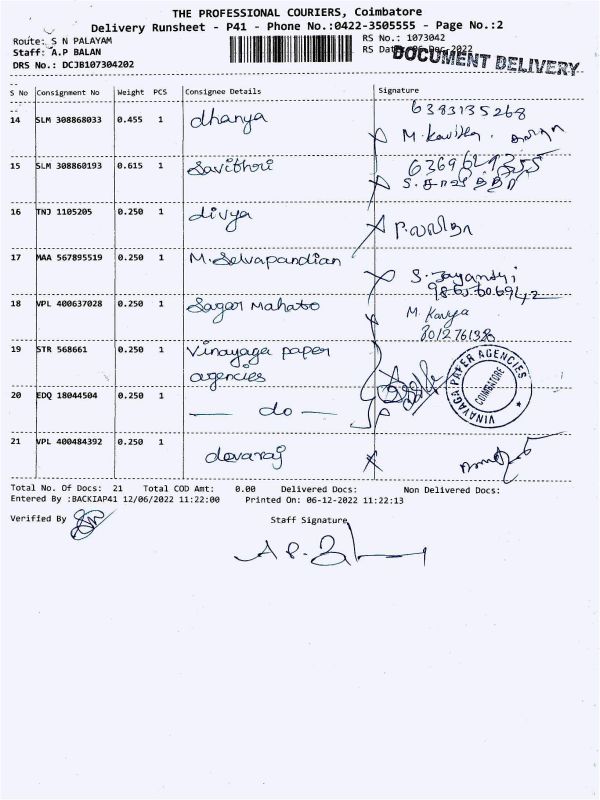 THE PROFESSIONAL COURIERS, Coimbatore
Delivery Runsheet - P41 - Phone No.:0422-3505555 - Page No.:2
Route: S N PALAYAM RS No.: 1073042
Staff: A.P BALAN RS Date 06-Dec-2022
DOCUMENT DELIVERY
DRS No.: DCJB107304202
S No Consignment No Weight PCS Consignee Details Signature
14 SLM 308868033 0.455 1 dhanya 6383135268
M. Kavitha.
15 SLM 308860193 0.615 1 Savithri
S. சாவித்திரி
16 TNJ 1105205 0.250 1 divya
17 MAA 567895519 0.250 1 M. Selvapandian S. Jayanthi
18 VPL 400637028 0.250 1 Sagar Mahato M. Kavya
19 STR 568661 0.250 1 Vinayaga paper
agencies
VINAYAGA PAPER AGENCIES
COIMBATORE
20 EDQ 18044504 0.250 1 — do —
21 VPL 400484392 0.250 1 devaraj
Total No. Of Docs: 21 Total COD Amt: 0.00 Delivered Docs: Non Delivered Docs:
Entered By :BACKIAP41 12/06/2022 11:22:00 Printed On: 06-12-2022 11:22:13
Verified By Staff Signature